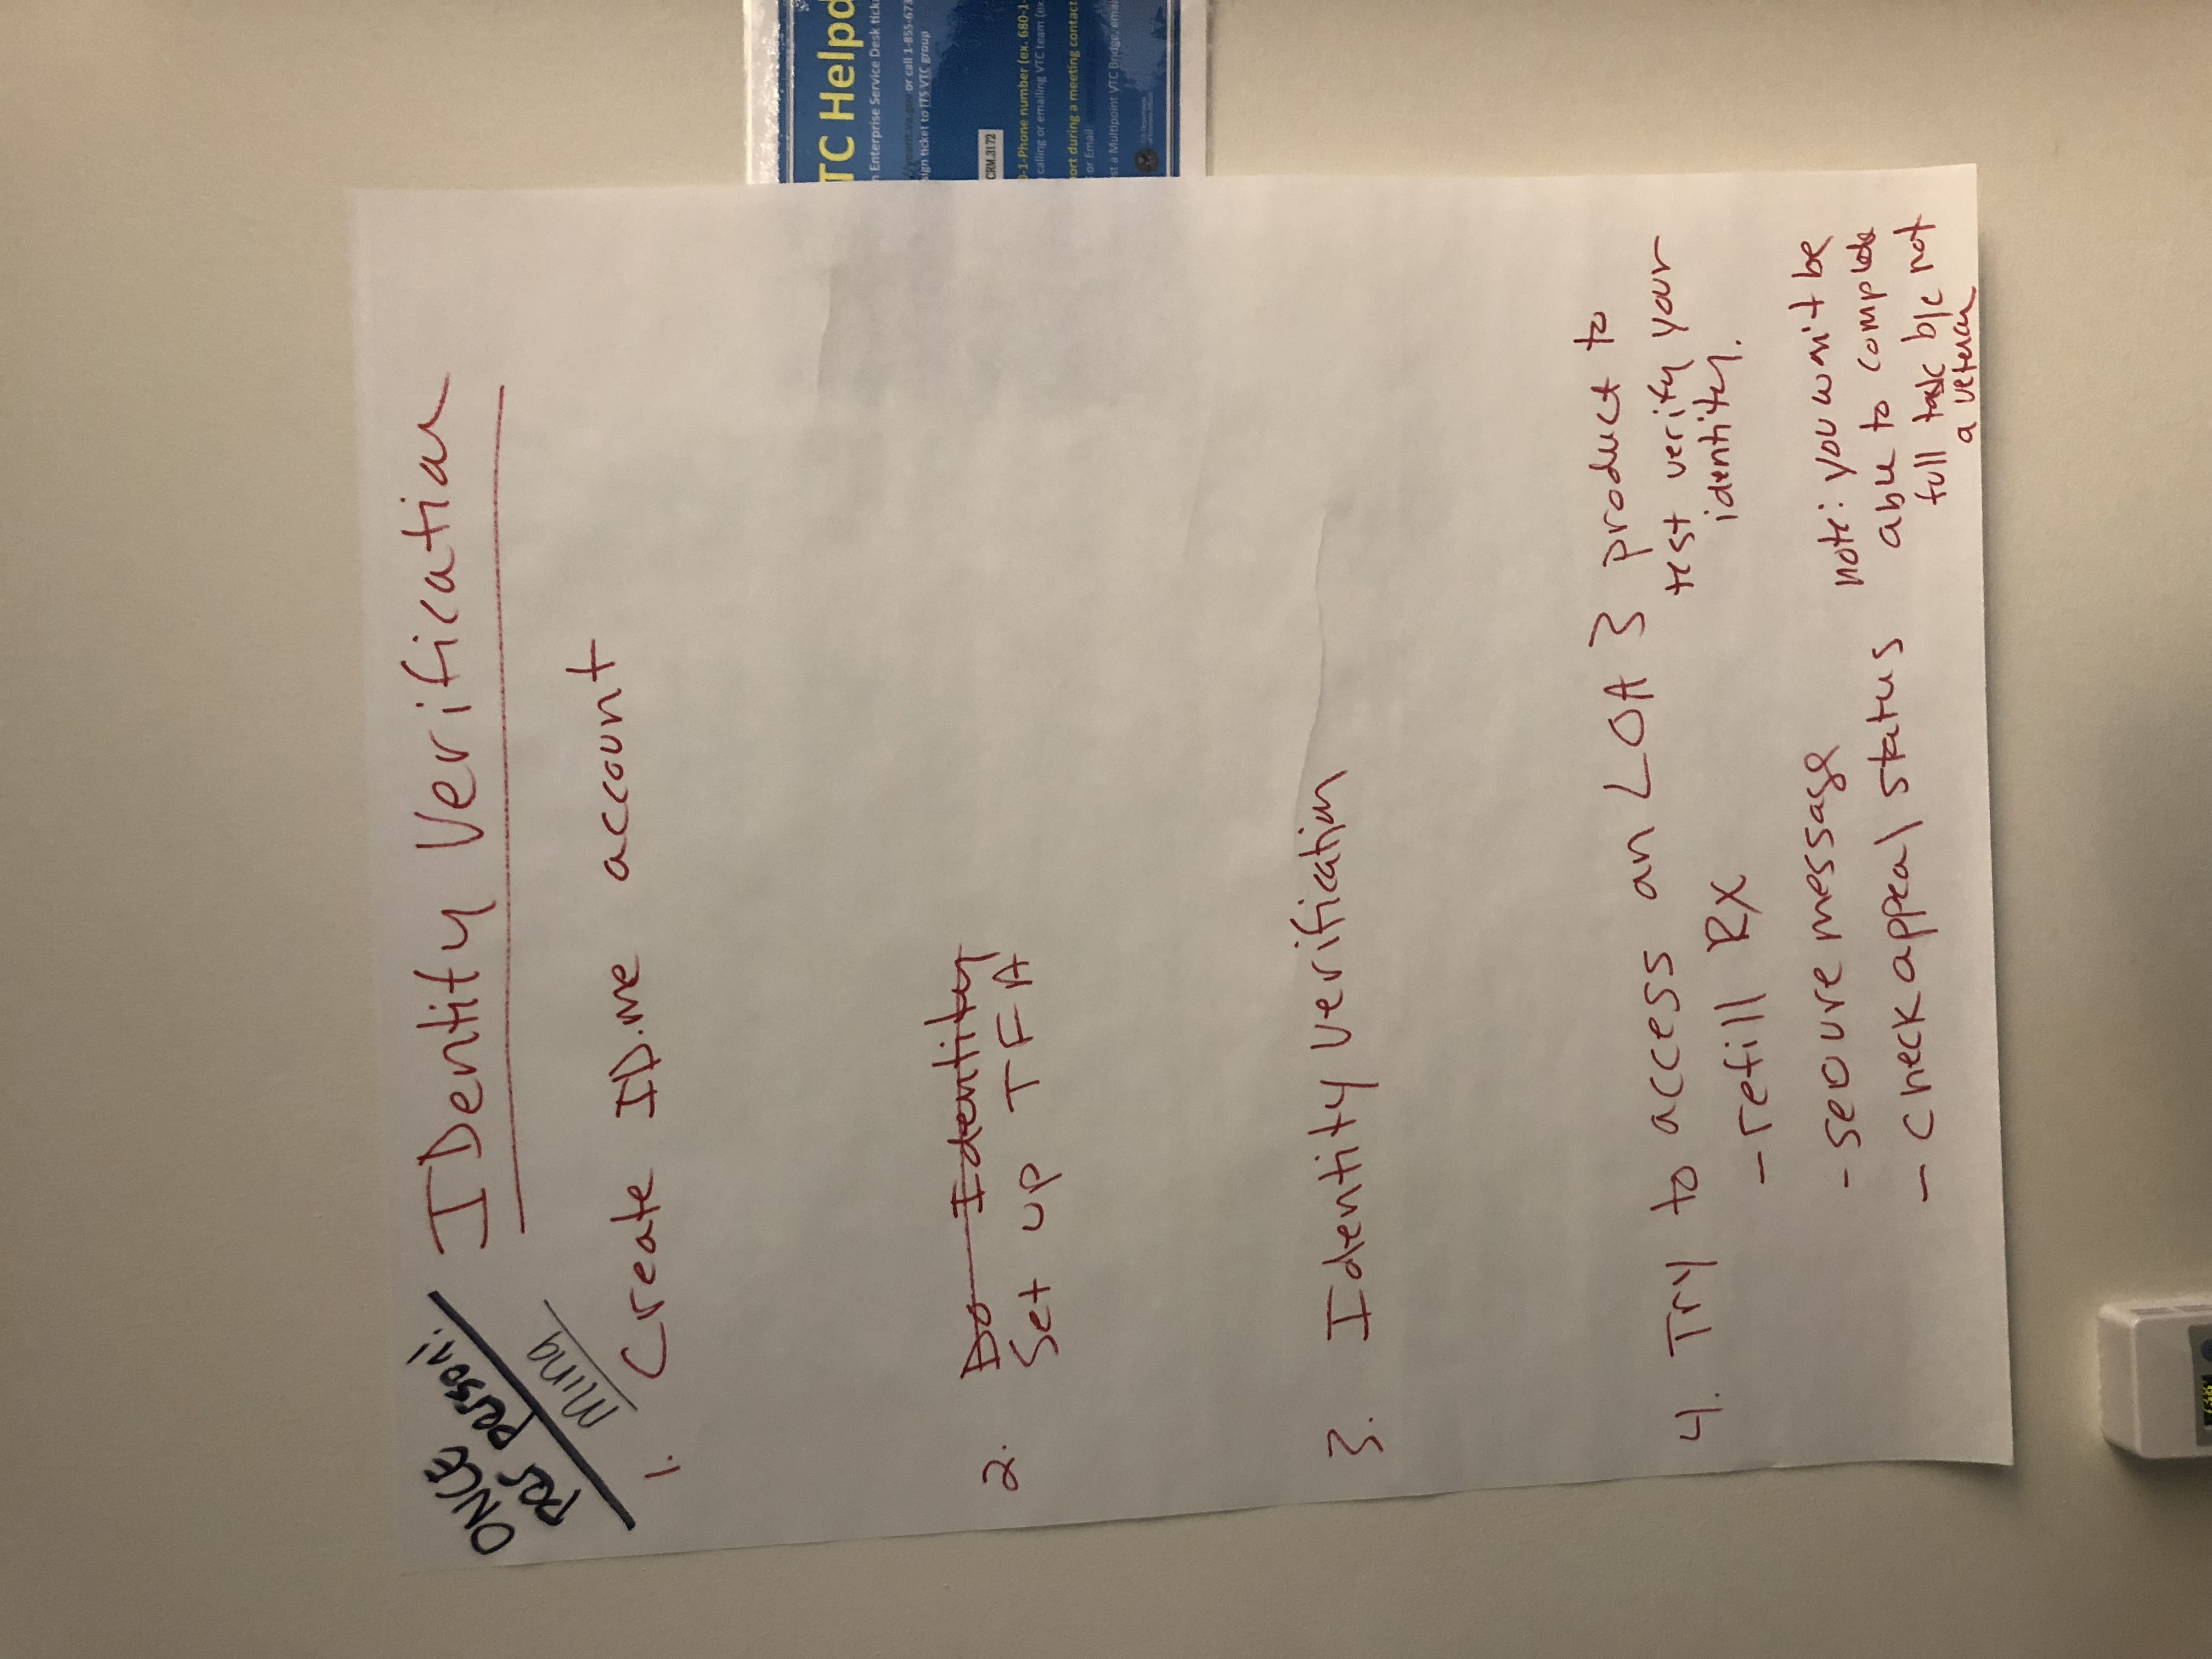 ONCE
per person!
Ming
IDentity Verification
1. Create ID.me account
2. Do Identity
Set up TFA
3. Identity Verification
4. Try to access an LOA 3 product to
test verify your
identity.
- refill Rx
- secure message
- check appeal status
note: you won't be
able to complete
full task b/c not
a veteran
TC Helpd
Enterprise Service Desk tick
or call 1-855-673
sign ticket to ITS VTC group
CRM.3172
-1-Phone number (ex. 680-1-
calling or emailing VTC team (ex
ort during a meeting contact
or Email:
st a Multipoint VTC Bridge, emai